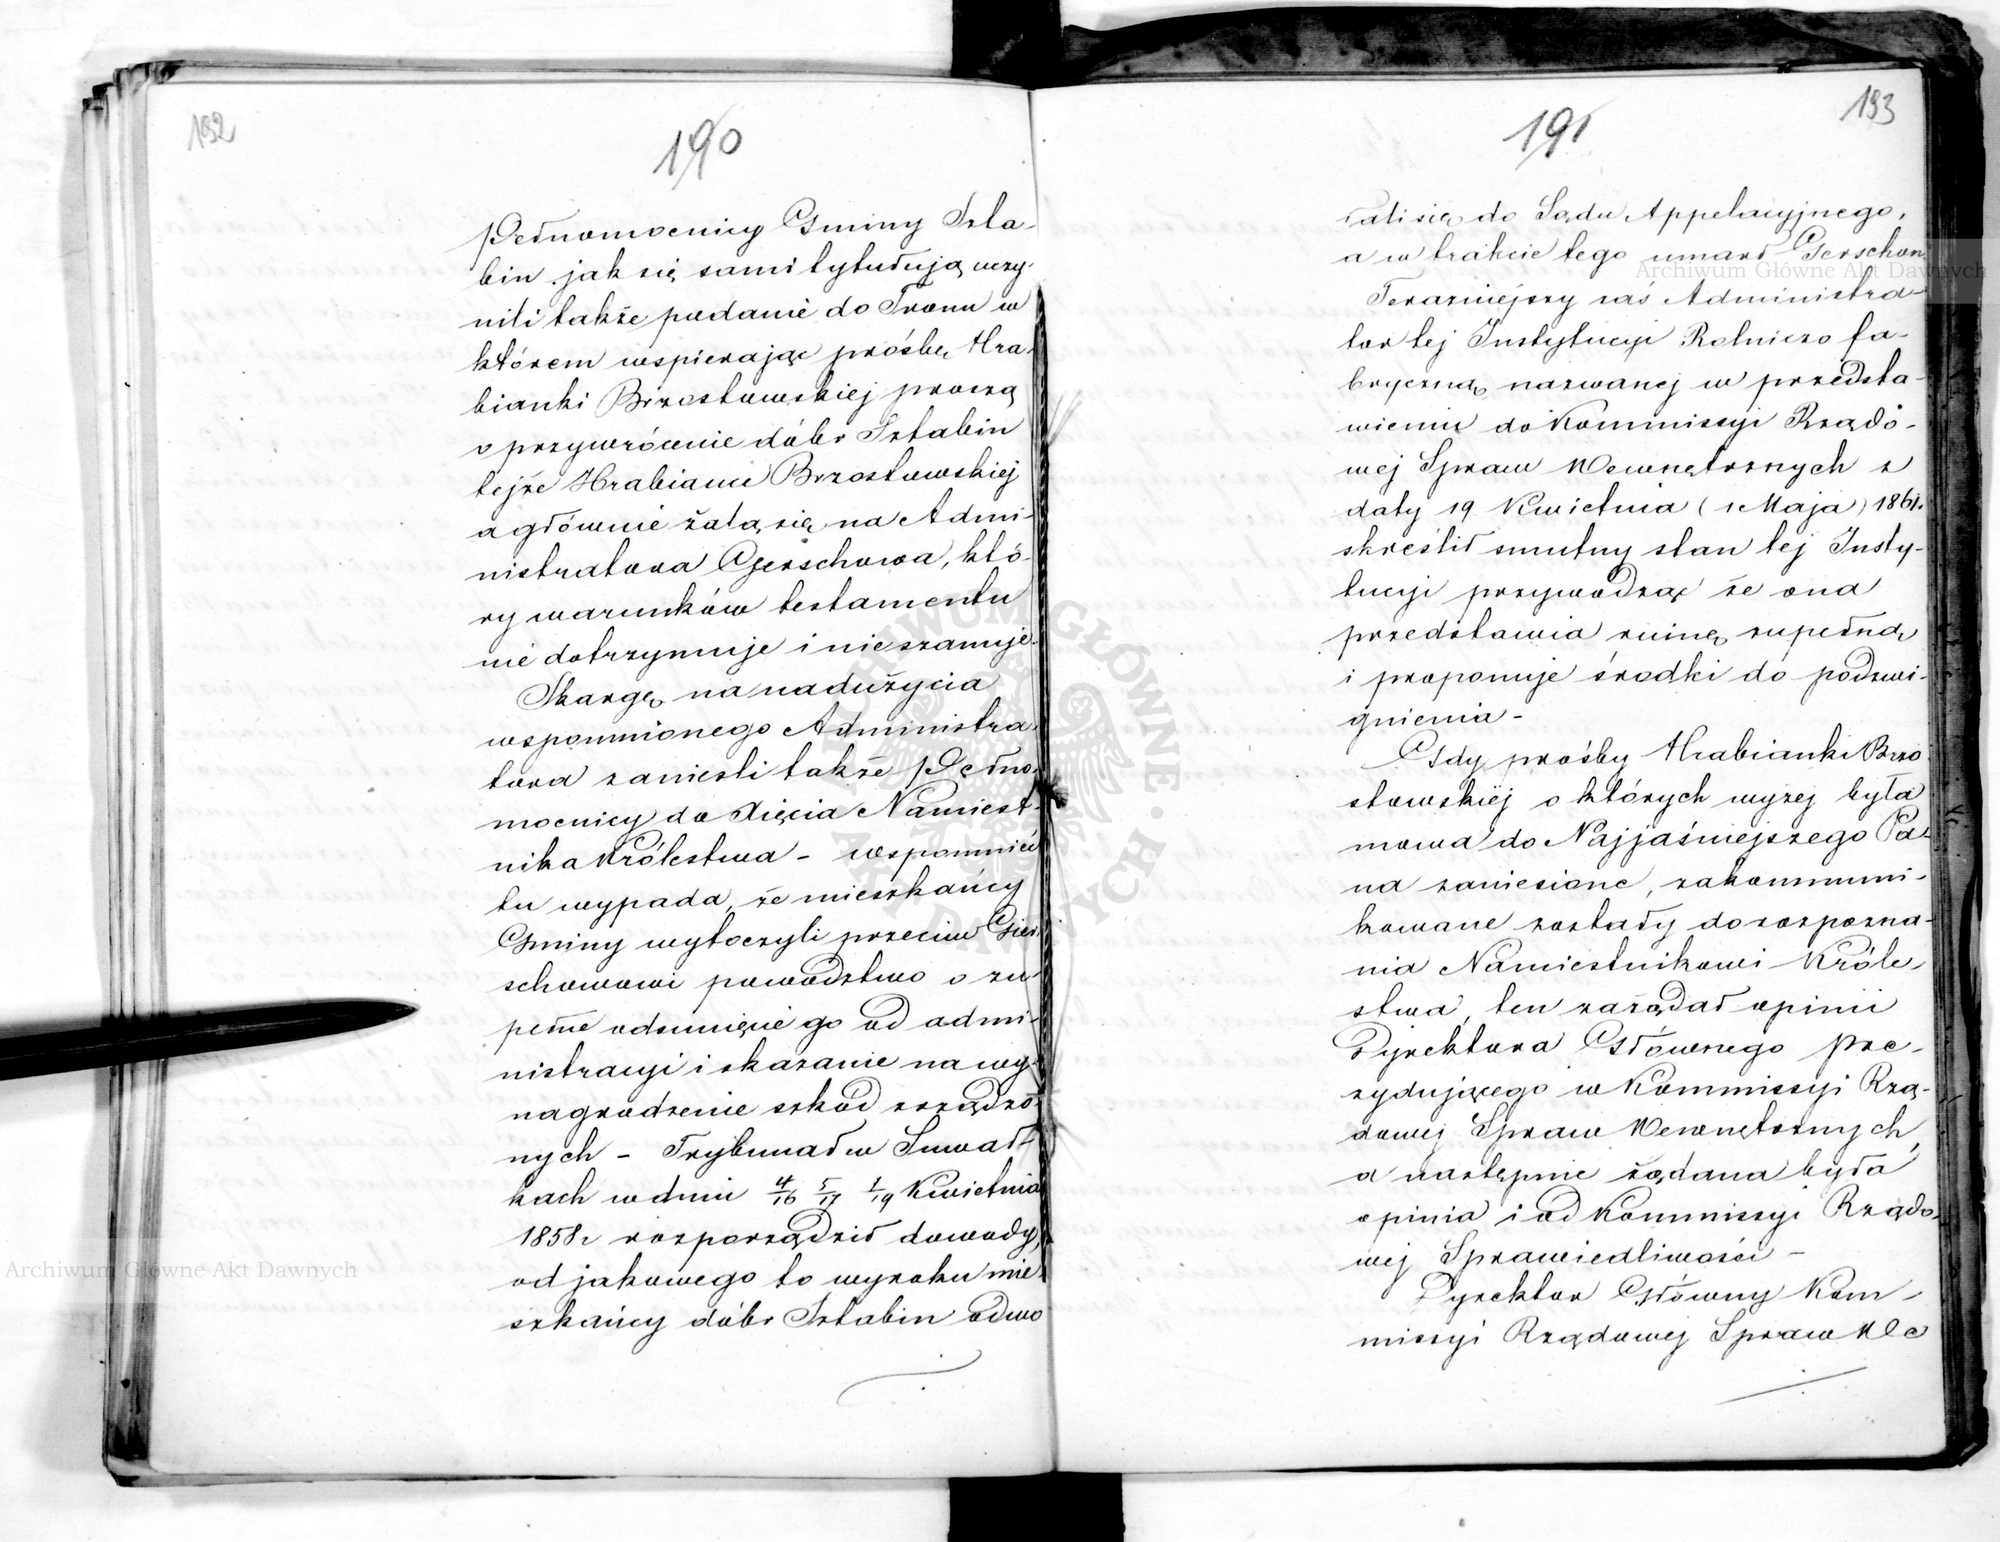 192
190
Pełnomocnicy Gminy Szta-
bin jak się sami tytułują uczy-
nili także podanie do Tronu w
którem wspierając prośbę Hra-
bianki Brzostowskiej proszą
o przywrócenie dóbr Sztabin
tejże Hrabiance Brzostowskiej
a głównie żalą się na Admi-
nistratora Gerschowa, któ-
ry warunków testamentu
nie dotrzymuje i nieszanuje.
Skargę na nadużycia
wspomnionego Administra-
tora zanieśli także Pełno-
mocnicy do Xięcia Namiest-
nika Królestwa - wspomnieć
tu wypada, że mieszkańcy
Gminy wytoczyli przeciw Gier-
schowowi powództwo o zu-
pełne odsunięcie go od admi-
nistracyi i skazanie na wy-
nagrodzenie szkód zrządzo-
nych - Trybunał w Suwał-
kach w dniu 4/16 5/17 7/19 Kwietnia
1858r rozporządził dowody,
od jakowego to wyroku mie-
szkańcy dóbr Sztabin odwo
193
191
łali się do Sądu Appelacyjnego,
a w trakcie tego umarł Gerschow.
Teraźniejszy zaś Administra-
tor tej Instytucyi Rolniczo fa-
bryczną nazwanej w przedsta-
wieniu do Kommissyi Rządo-
wej Spraw Wewnętrznych z
daty 19 Kwietnia (1 Maja) 1861r.
skreślił smutny stan tej Insty-
tucyi przywodząc że ona
przedstawia ruinę zupełną
i proponuje środki do podźwi-
gnienia -
Gdy prośby Hrabianki Brzo-
stowskiej o których wyżej była
mowa do Najjaśniejszego Pa-
na zaniesione, zakommuni-
kowane zostały do rozpozna-
nia Namiestnikowi Króle-
stwa, ten zażądał opinii
Dyrektora Głównego pre-
zydującego w Kommissyi Rzą-
dowej Spraw Wewnętrznych,
a następnie żądana była
opinia i od Kommissyi Rządo-
wej Sprawiedliwości -
Dyrektor Główny Kom-
missyi Rządowej Spraw We
Archiwum Główne Akt Dawnych
Archiwum Główne Akt Dawnych
ARCHIWUM GŁÓWNE AKT DAWNYCH